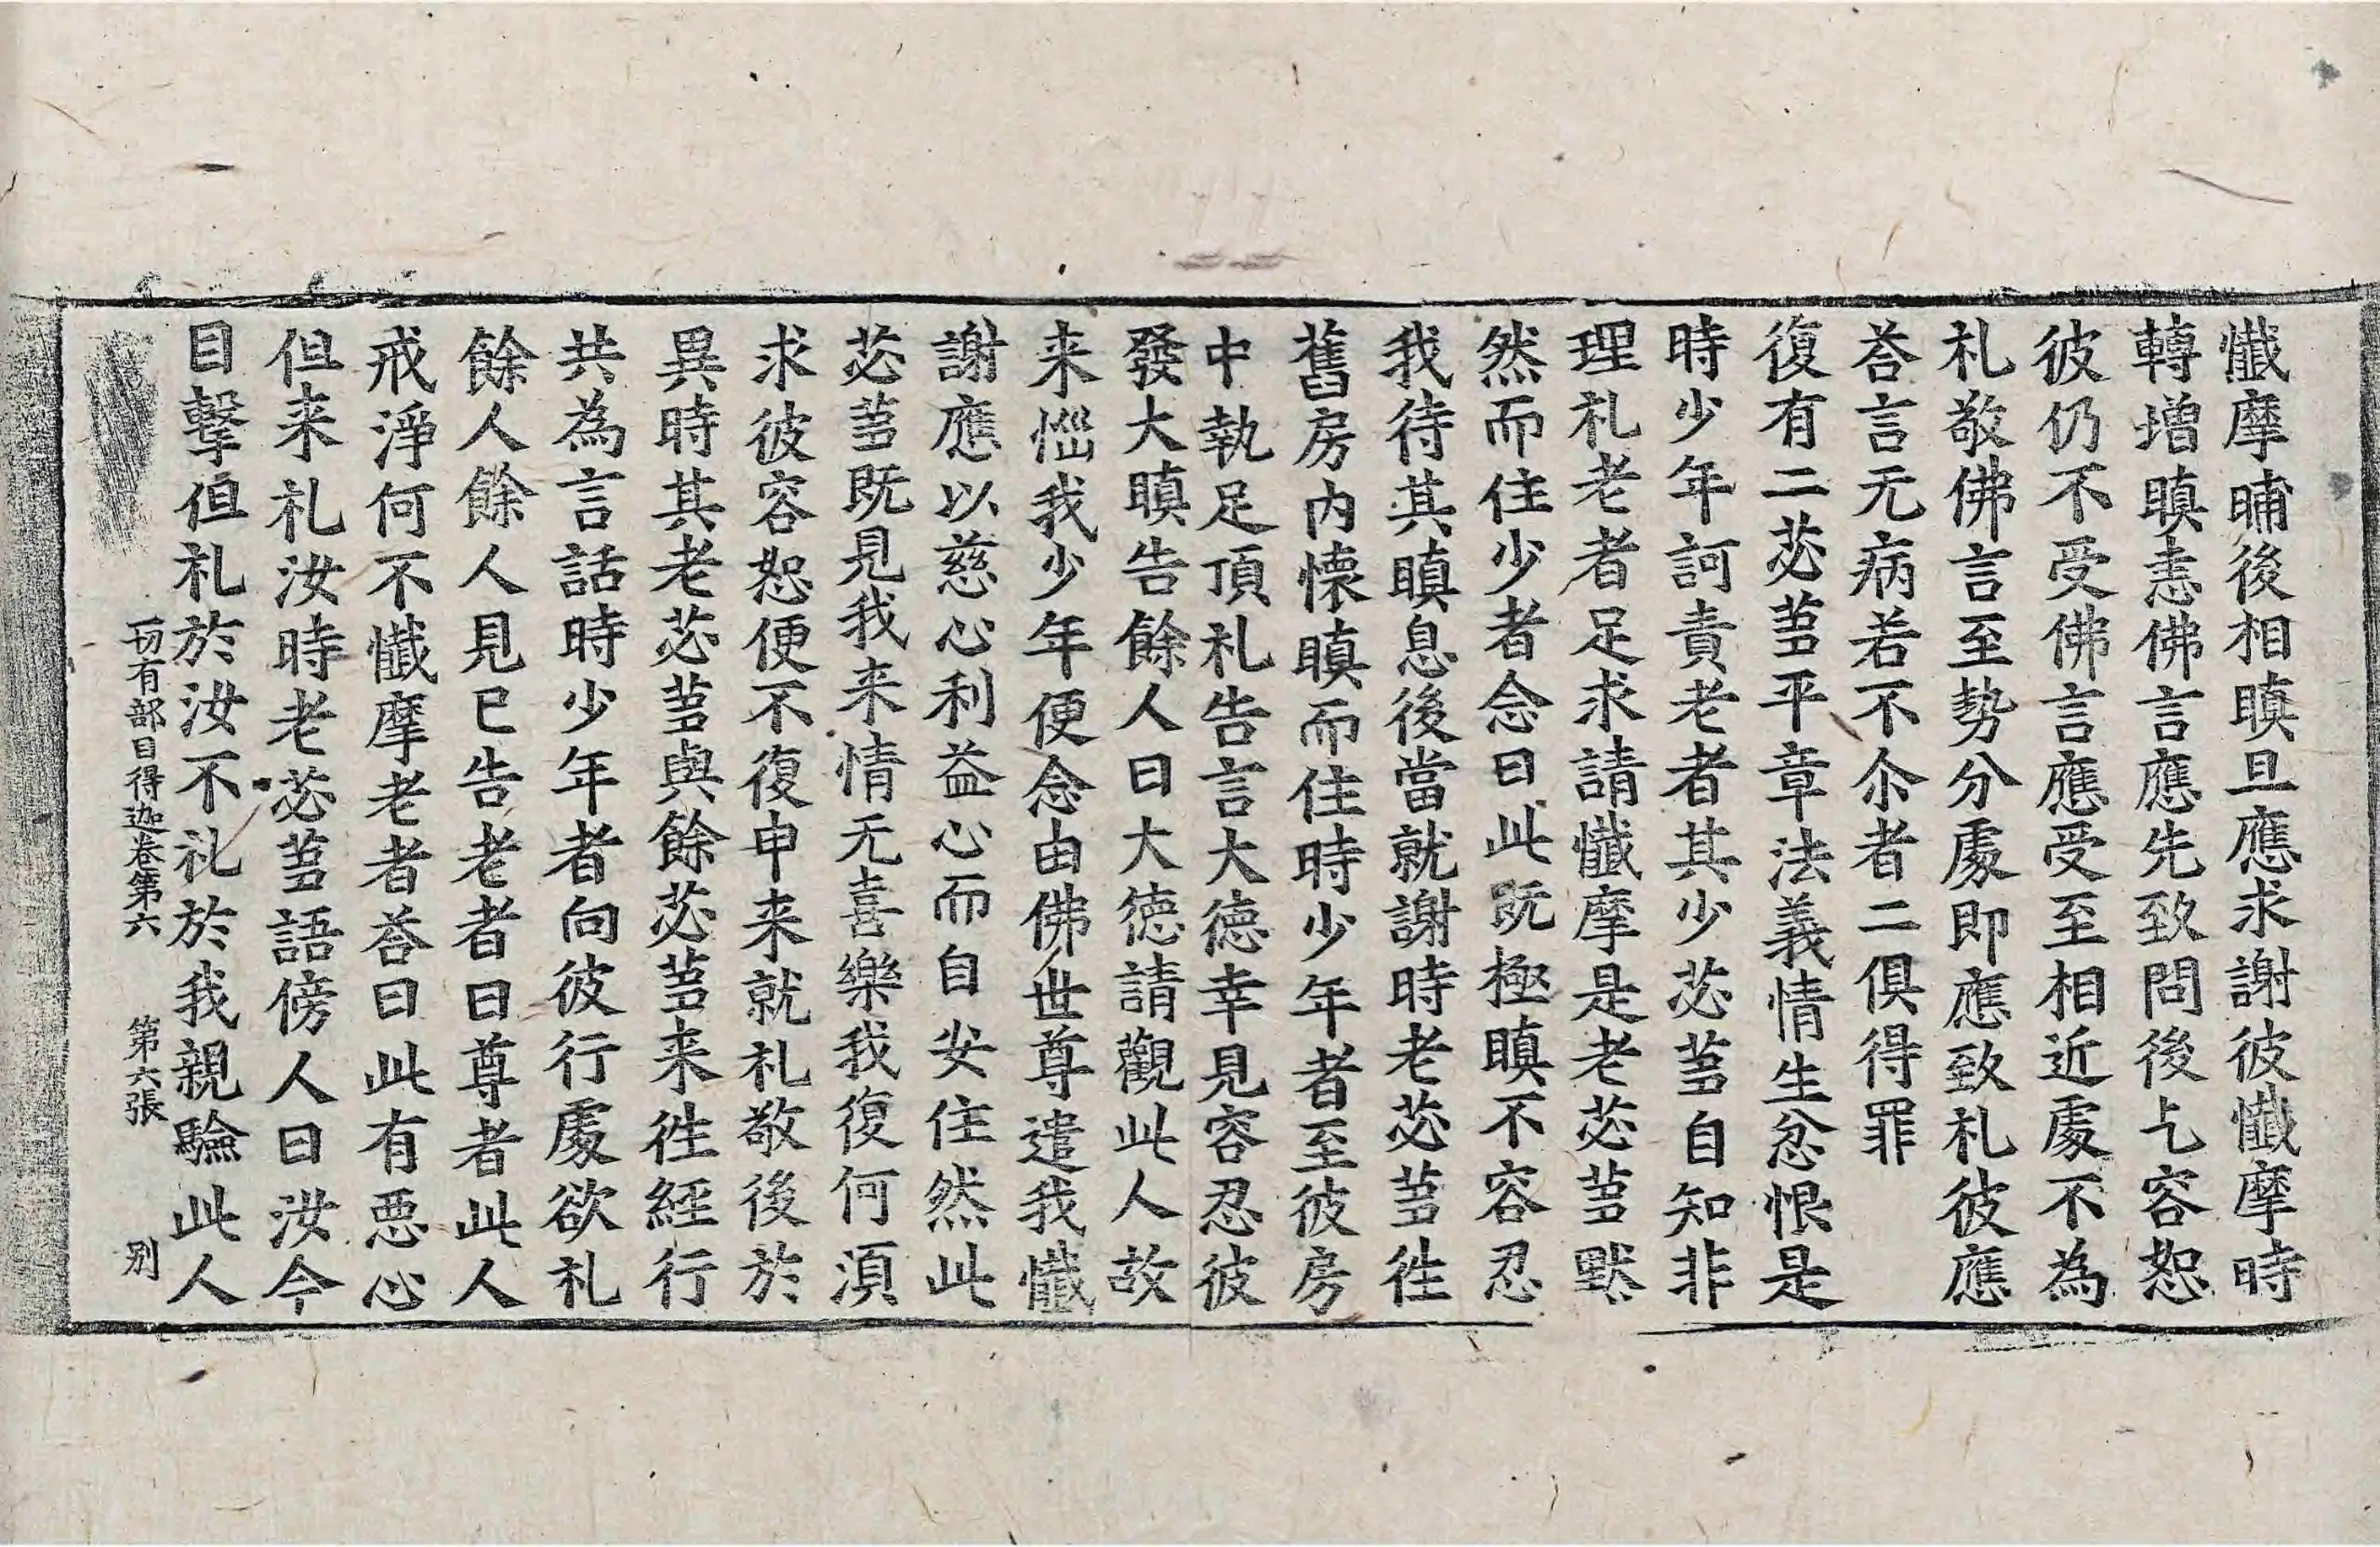 懺摩晡後相瞋旦應求謝彼懺摩時
轉增瞋恚佛言應先致問後乞容恕
彼仍不受佛言應受至相近處不為
礼敬佛言至勢分處即應致礼彼應
荅言无病若不尒者二俱得罪
復有二苾蒭平章法義情生忿恨是
時少年訶責老者其少苾蒭自知非
理礼老者足求請懺摩是老苾蒭默
然而住少者念曰此既極瞋不容忍
我待其瞋息後當就謝時老苾蒭徃
舊房内懷瞋而住時少年者至彼房
中執足頂礼告言大德幸見容忍彼
發大瞋告餘人曰大德請觀此人故
来惱我少年便念由佛世尊遣我懺
謝應以慈心利益心而自安住然此
苾蒭既見我来情无喜樂我復何須
求彼容恕便不復申来就礼敬後於
異時其老苾蒭與餘苾蒭来徃經行
共為言話時少年者向彼行處欲礼
餘人餘人見已告老者曰尊者此人
戒淨何不懺摩老者荅曰此有惡心
但来礼汝時老苾蒭語傍人曰汝今
目擊但礼於汝不礼於我親驗此人
一切有部目得迦卷第六 第六張 别